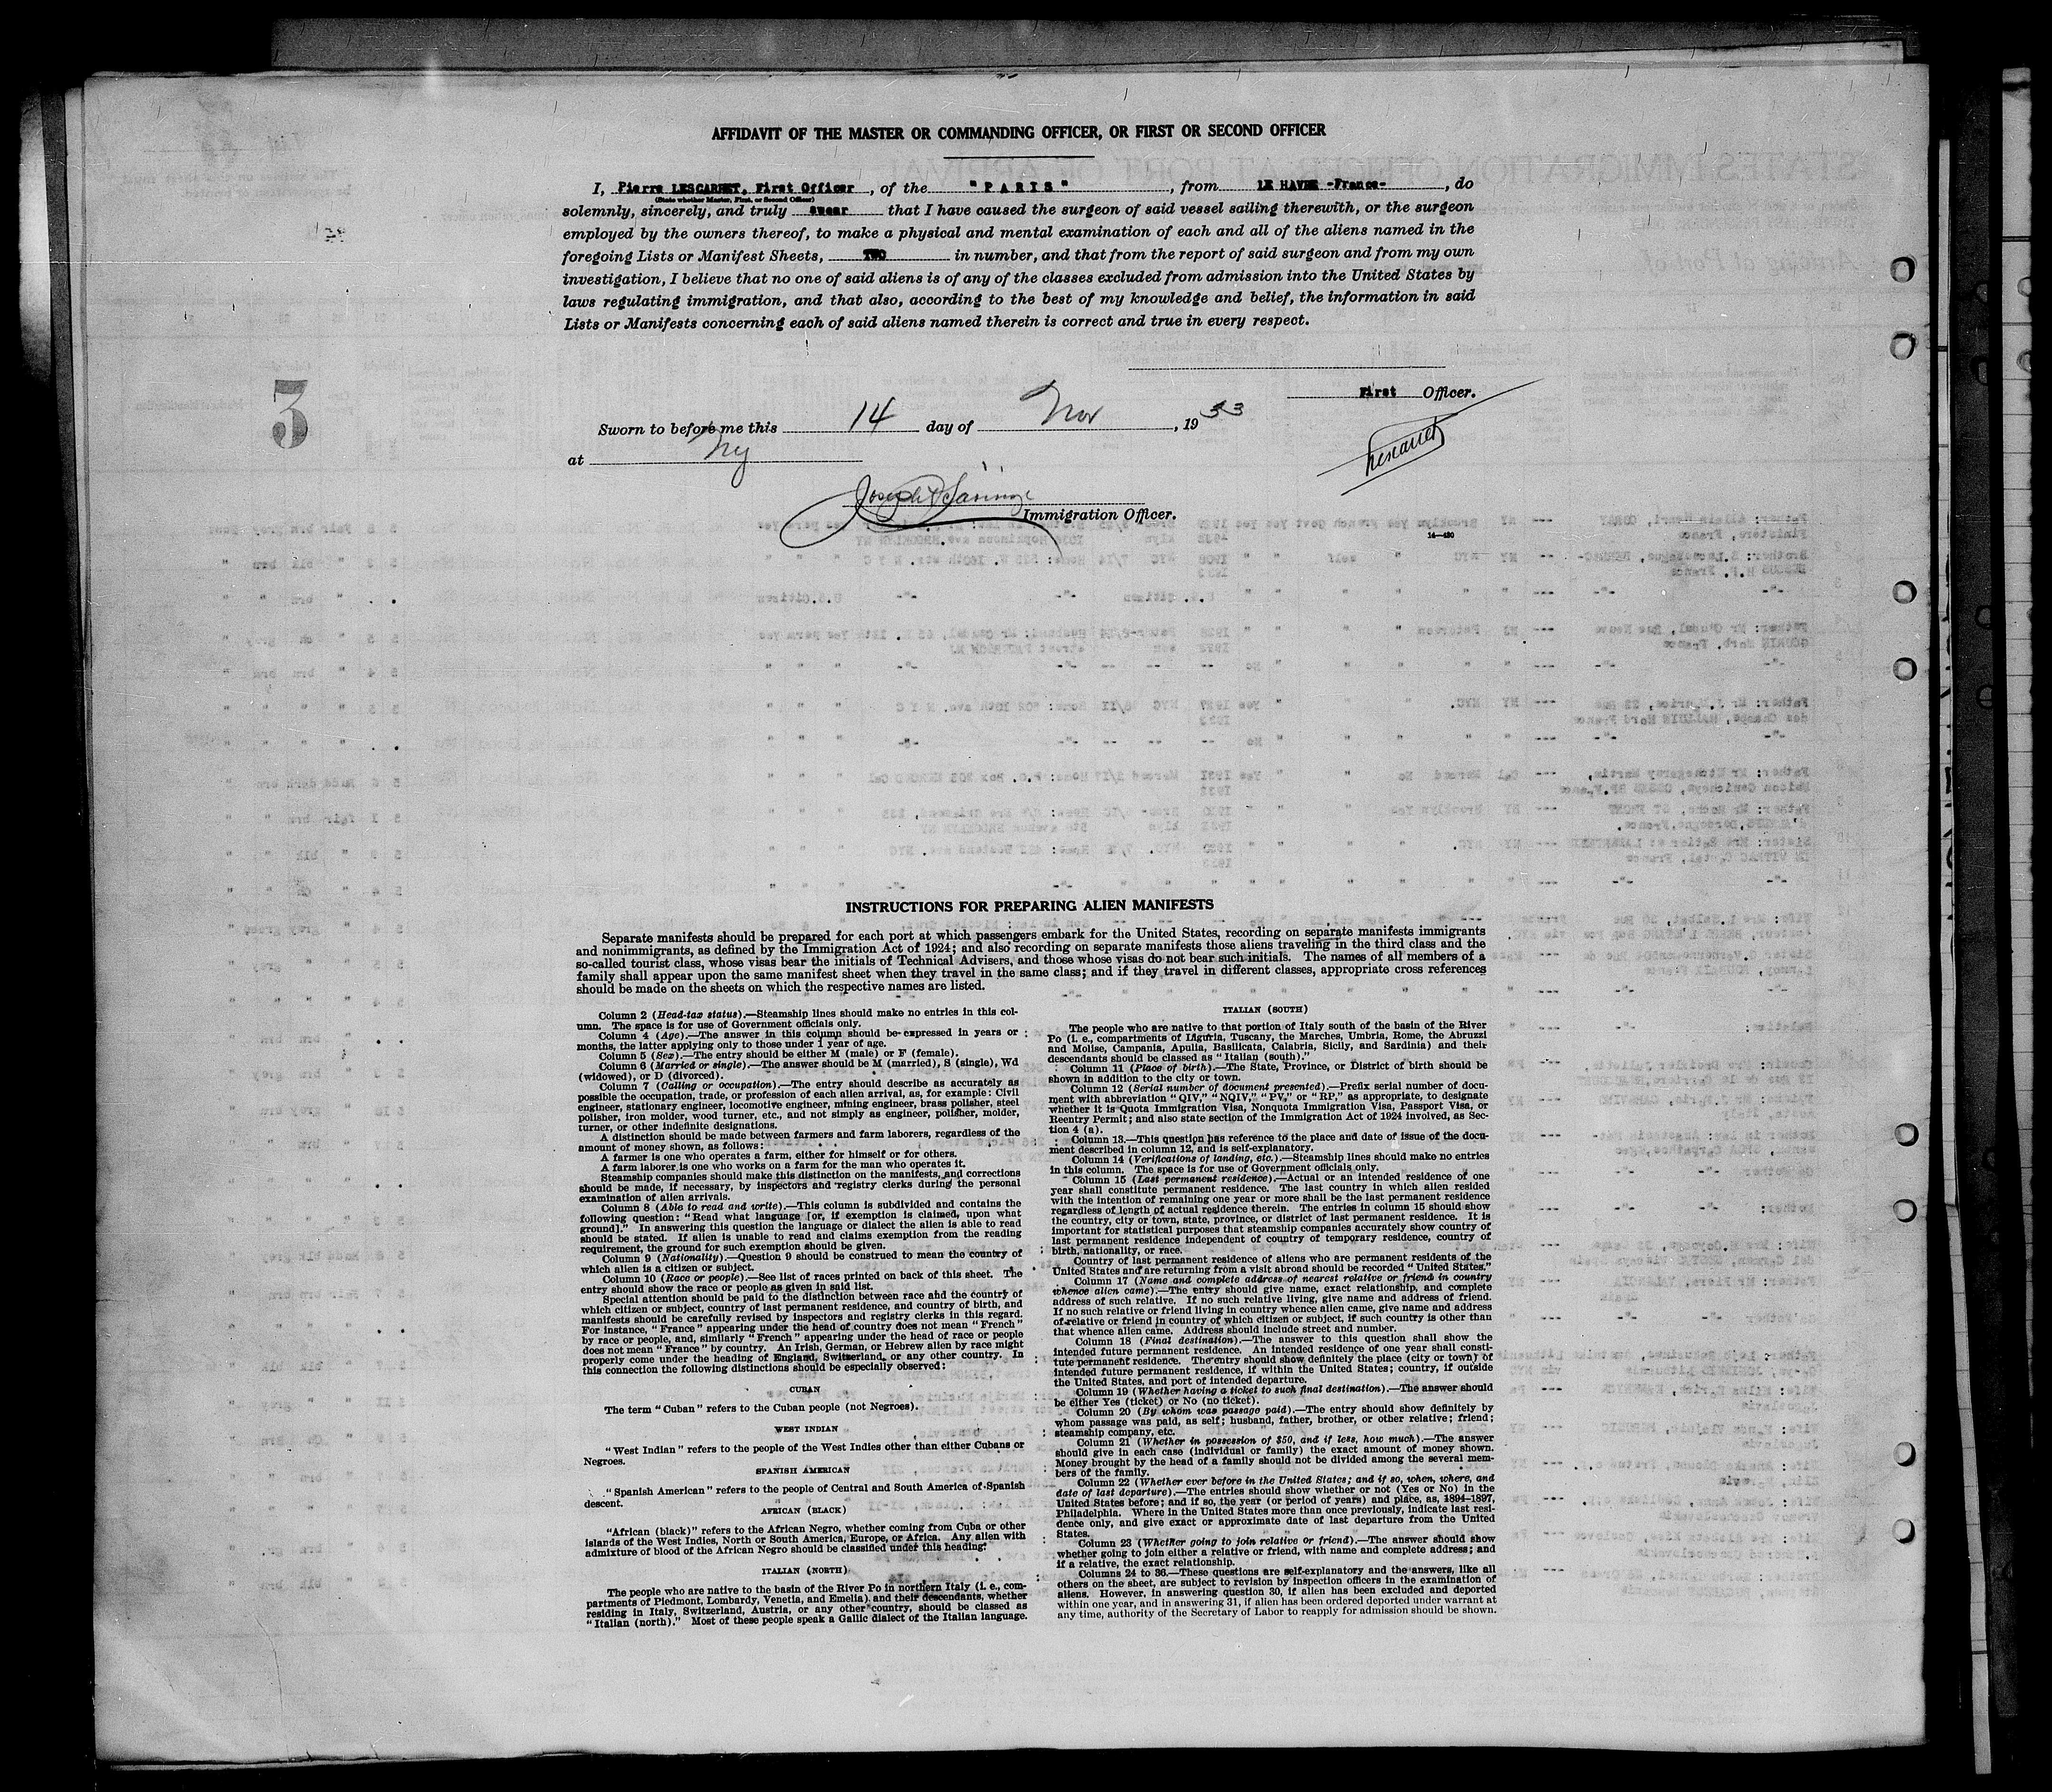 AFFIDAVIT OF THE MASTER OR COMMANDING OFFICER, OR FIRST OR SECOND OFFICER
I, Pierre LESCARRET, First Officer, of the "PARIS", from LE HAVRE -France-, do
(State whether Master, First, or Second Officer)
solemnly, sincerely, and truly swear that I have caused the surgeon of said vessel sailing therewith, or the surgeon
employed by the owners thereof, to make a physical and mental examination of each and all of the aliens named in the
foregoing Lists or Manifest Sheets, TWO in number, and that from the report of said surgeon and from my own
investigation, I believe that no one of said aliens is of any of the classes excluded from admission into the United States by
laws regulating immigration, and that also, according to the best of my knowledge and belief, the information in said
Lists or Manifests concerning each of said aliens named therein is correct and true in every respect.
First Officer.
3
Sworn to before me this 14 day of Nov, 1933
Lescarret
at Ny
Joseph
Immigration Officer.
14—430
INSTRUCTIONS FOR PREPARING ALIEN MANIFESTS
Separate manifests should be prepared for each port at which passengers embark for the United States, recording on separate manifests immigrants
and nonimmigrants, as defined by the Immigration Act of 1924; and also recording on separate manifests those aliens traveling in the third class and the
so-called tourist class, whose visas bear the initials of Technical Advisers, and those whose visas do not bear such initials. The names of all members of a
family shall appear upon the same manifest sheet when they travel in the same class; and if they travel in different classes, appropriate cross references
should be made on the sheets on which the respective names are listed.
Column 2 (Head-tax status).—Steamship lines should make no entries in this col-
umn. The space is for use of Government officials only.
Column 4 (Age).—The answer in this column should be expressed in years or
months, the latter applying only to those under 1 year of age.
Column 5 (Sex).—The entry should be either M (male) or F (female).
Column 6 (Married or single).—The answer should be M (married), S (single), Wd
(widowed), or D (divorced).
Column 7 (Calling or occupation).—The entry should describe as accurately as
possible the occupation, trade, or profession of each alien arrival, as, for example: Civil
engineer, stationary engineer, locomotive engineer, mining engineer, brass polisher, steel
polisher, iron molder, wood turner, etc., and not simply as engineer, polisher, molder,
turner, or other indefinite designations.
A distinction should be made between farmers and farm laborers, regardless of the
amount of money shown, as follows:
A farmer is one who operates a farm, either for himself or for others.
A farm laborer is one who works on a farm for the man who operates it.
Steamship companies should make this distinction on the manifests, and corrections
should be made, if necessary, by inspectors and registry clerks during the personal
examination of alien arrivals.
Column 8 (Able to read and write).—This column is subdivided and contains the
following question: "Read what language [or, if exemption is claimed, upon what
ground]." In answering this question the language or dialect the alien is able to read
should be stated. If alien is unable to read and claims exemption from the reading
requirement, the ground for such exemption should be given.
Column 9 (Nationality).—Question 9 should be construed to mean the country of
which alien is a citizen or subject.
Column 10 (Race or people).—See list of races printed on back of this sheet. The
entry should show the race or people as given in said list.
Special attention should be paid to the distinction between race and the country of
which citizen or subject, country of last permanent residence, and country of birth, and
manifests should be carefully revised by inspectors and registry clerks in this regard.
For instance, "France" appearing under the head of country does not mean "French"
by race or people, and, similarly "French" appearing under the head of race or people
does not mean "France" by country. An Irish, German, or Hebrew alien by race might
properly come under the heading of England, Switzerland, or any other country. In
this connection the following distinctions should be especially observed:
CUBAN
The term "Cuban" refers to the Cuban people (not Negroes).
WEST INDIAN
"West Indian" refers to the people of the West Indies other than either Cubans or
Negroes.
SPANISH AMERICAN
"Spanish American" refers to the people of Central and South America of Spanish
descent.
AFRICAN (BLACK)
"African (black)" refers to the African Negro, whether coming from Cuba or other
islands of the West Indies, North or South America, Europe, or Africa. Any alien with
admixture of blood of the African Negro should be classified under this heading.
ITALIAN (NORTH)
The people who are native to the basin of the River Po in northern Italy (i. e., com-
partments of Piedmont, Lombardy, Venetia, and Emelia) and their descendants, whether
residing in Italy, Switzerland, Austria, or any other country, should be classed as
"Italian (north)." Most of these people speak a Gallic dialect of the Italian language.
ITALIAN (SOUTH)
The people who are native to that portion of Italy south of the basin of the River
Po (i. e., compartments of Liguria, Tuscany, the Marches, Umbria, Rome, the Abruzzi
and Molise, Campania, Apulia, Basilicata, Calabria, Sicily, and Sardinia) and their
descendants should be classed as "Italian (south)."
Column 11 (Place of birth).—The State, Province, or District of birth should be
shown in addition to the city or town.
Column 12 (Serial number of document presented).—Prefix serial number of docu-
ment with abbreviation "QIV," "NQIV," "PV," or "RP," as appropriate, to designate
whether it is Quota Immigration Visa, Nonquota Immigration Visa, Passport Visa, or
Reentry Permit; and also state section of the Immigration Act of 1924 involved, as Sec-
tion 4 (a).
Column 13.—This question has reference to the place and date of issue of the docu-
ment described in column 12, and is self-explanatory.
Column 14 (Verifications of landing, etc.).—Steamship lines should make no entries
in this column. The space is for use of Government officials only.
Column 15 (Last permanent residence).—Actual or an intended residence of one
year shall constitute permanent residence. The last country in which alien resided
with the intention of remaining one year or more shall be the last permanent residence
regardless of length of actual residence therein. The entries in column 15 should show
the country, city or town, state, province, or district of last permanent residence. It is
important for statistical purposes that steamship companies accurately show country of
last permanent residence independent of country of temporary residence, country of
birth, nationality, or race.
Country of last permanent residence of aliens who are permanent residents of the
United States and are returning from a visit abroad should be recorded "United States."
Column 17 (Name and complete address of nearest relative or friend in country
whence alien came).—The entry should give name, exact relationship, and complete
address of such relative. If no such relative living, give name and address of friend.
If no such relative or friend living in country whence alien came, give name and address
of relative or friend in country of which citizen or subject, if such country is other than
that whence alien came. Address should include street and number.
Column 18 (Final destination).—The answer to this question shall show the
intended future permanent residence. An intended residence of one year shall consti-
tute permanent residence. The entry should show definitely the place (city or town) of
intended future permanent residence, if within the United States; country, if outside
the United States, and port of intended departure.
Column 19 (Whether having a ticket to such final destination).—The answer should
be either Yes (ticket) or No (no ticket).
Column 20 (By whom was passage paid).—The entry should show definitely by
whom passage was paid, as self; husband, father, brother, or other relative; friend;
steamship company, etc.
Column 21 (Whether in possession of $50, and if less, how much).—The answer
should give in each case (individual or family) the exact amount of money shown.
Money brought by the head of a family should not be divided among the several mem-
bers of the family.
Column 22 (Whether ever before in the United States; and if so, when, where, and
date of last departure).—The entries should show whether or not (Yes or No) in the
United States before; and if so, the year (or period of years) and place, as, 1894-1897,
Philadelphia. Where in the United States more than once previously, indicate last resi-
dence only, and give exact or approximate date of last departure from the United
States.
Column 23 (Whether going to join relative or friend).—The answer should show
whether going to join either a relative or friend, with name and complete address; and
if a relative, the exact relationship.
Columns 24 to 36.—These questions are self-explanatory and the answers, like all
others on the sheet, are subject to revision by inspection officers in the examination of
aliens. However, in answering question 30, if alien has been excluded and deported
within one year, and in answering 31, if alien has been ordered deported under warrant at
any time, authority of the Secretary of Labor to reapply for admission should be shown.